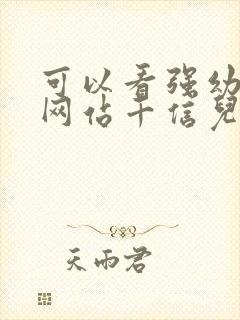 可以看强幼
网佔十信兒
天雨君